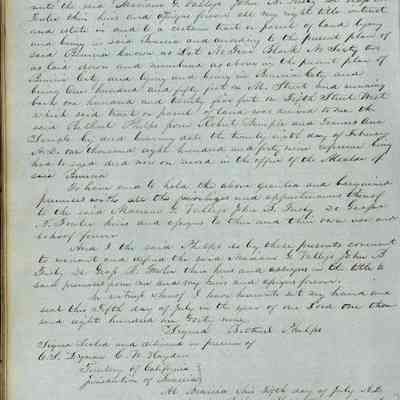 unto the said Mariano G. Vallejo John B. Frisby
Foster their heirs and assigns forever all my right title interest
and estate in and to a certain tract or parcel of land lying
and being in said Benicia and according to the present plan of
said Benicia known as Lot No. Block No. Sixty two
as laid down and numbered as above in the present plan of
Benicia City and lying and being in Benicia City and
being One hundred and fifty feet on M. Street and running
back one hundred and twenty five feet on Fifth Street West
which said tract or parcel of land was deeded to me the
said Bethuel Phelps from Robert Semple and Frances Ann
Semple by deed bearing date the twenty sixth day of February
A.D. one thousand eight hundred and forty nine reference being
had to said deed now on record in the office of the Alcalde of
said Benicia
To have and to hold the above granted and bargained
premises with all the privileges and appurtenances thereof
to the said Mariano G. Vallejo John B. Frisby
N. Foster heirs and assigns to their and their own use and
behoof forever
And I the said Phelps do by these presents covenant
to warrant and defend the said Mariano G. Vallejo John B
Frisby, N. Foster their heirs and assigns in the title to
said premises from me and my heirs and assigns forever.
In witness thereof I have hereunto set my hand and
seal this Fifth day of July in the year of our Lord One thou
sand eight hundred and forty nine
Signed Bethuel Phelps
Signed Sealed and delivered in presence of
C. W. Hayden
Territory of California
Jurisdiction of Benicia
At Benicia this Fifth day of July A.D.